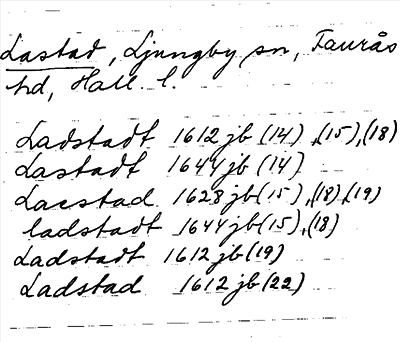 Lastad, Ljungby sn, Faurås
hd, Hall. l.
Ladstadt 1612 jb (14), (15), (18)
Lastadt 1644 jb (14)
Lacstad 1628 jb (15), (18), (19)
ladstadt 1644 jb (15), (18)
Ladstadt 1612 jb (19)
Ladstad 1612 jb (22)